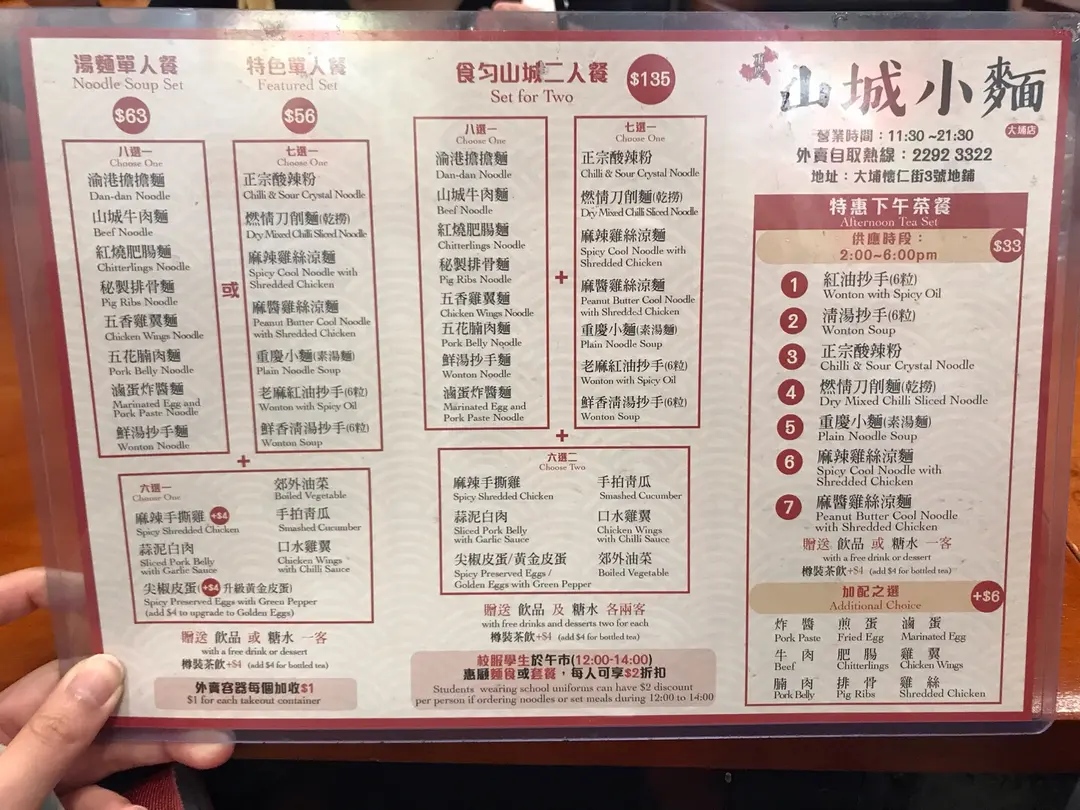 湯麵單人餐
Noodle Soup Set
$63
八選一
Choose One
渝港擔擔麵
Dan-dan Noodle
山城牛肉麵
Beef Noodle
紅燒肥腸麵
Chitterlings Noodle
秘製排骨麵
Pig Ribs Noodle
五香雞翼麵
Chicken Wings Noodle
五花腩肉麵
Pork Belly Noodle
滷蛋炸醬麵
Marinated Egg and
Pork Paste Noodle
鮮湯抄手麵
Wonton Noodle
或
特色單人餐
Featured Set
$56
七選一
Choose One
正宗酸辣粉
Chilli & Sour Crystal Noodle
燃情刀削麵(乾撈)
Dry Mixed Chilli Sliced Noodle
麻辣雞絲涼麵
Spicy Cool Noodle with
Shredded Chicken
麻醬雞絲涼麵
Peanut Butter Cool Noodle
with Shredded Chicken
重慶小麵(素湯麵)
Plain Noodle Soup
老麻紅油抄手(6粒)
Wonton with Spicy Oil
鮮香清湯抄手(6粒)
Wonton Soup
+
六選一
Choose One
麻辣手撕雞 +$4
Spicy Shredded Chicken
蒜泥白肉
Sliced Pork Belly
with Garlic Sauce
郊外油菜
Boiled Vegetable
手拍青瓜
Smashed Cucumber
口水雞翼
Chicken Wings
with Chilli Sauce
尖椒皮蛋(+$4 升級黃金皮蛋)
Spicy Preserved Eggs with Green Pepper
(add $4 to upgrade to Golden Eggs)
贈送 飲品 或 糖水 一客
with a free drink or dessert
樽裝茶飲+$4 (add $4 for bottled tea)
外賣容器每個加收$1
$1 for each takeout container
食匀山城二人餐 $135
Set for Two
八選一
Choose One
渝港擔擔麵
Dan-dan Noodle
山城牛肉麵
Beef Noodle
紅燒肥腸麵
Chitterlings Noodle
秘製排骨麵
Pig Ribs Noodle
五香雞翼麵
Chicken Wings Noodle
五花腩肉麵
Pork Belly Noodle
鮮湯抄手麵
Wonton Noodle
滷蛋炸醬麵
Marinated Egg and
Pork Paste Noodle
+
七選一
Choose One
正宗酸辣粉
Chilli & Sour Crystal Noodle
燃情刀削麵(乾撈)
Dry Mixed Chilli Sliced Noodle
麻辣雞絲涼麵
Spicy Cool Noodle with
Shredded Chicken
麻醬雞絲涼麵
Peanut Butter Cool Noodle
with Shredded Chicken
重慶小麵(素湯麵)
Plain Noodle Soup
老麻紅油抄手(6粒)
Wonton with Spicy Oil
鮮香清湯抄手(6粒)
Wonton Soup
+
六選二
Choose Two
麻辣手撕雞
Spicy Shredded Chicken
蒜泥白肉
Sliced Pork Belly
with Garlic Sauce
尖椒皮蛋/黃金皮蛋
Spicy Preserved Eggs /
Golden Eggs with Green Pepper
手拍青瓜
Smashed Cucumber
口水雞翼
Chicken Wings
with Chilli Sauce
郊外油菜
Boiled Vegetable
贈送 飲品 及 糖水 各兩客
with free drinks and desserts two for each
樽裝茶飲+$4 (add $4 for bottled tea)
校服學生於午市(12:00-14:00)
惠顧麵食或套餐，每人可享$2折扣
Students wearing school uniforms can have $2 discount
per person if ordering noodles or set meals during 12:00 to 14:00
山城小麵
大埔店
營業時間：11:30 ~21:30
外賣自取熱線：2292 3322
地址：大埔懷仁街3號地鋪
特惠下午茶餐
Afternoon Tea Set
供應時段：
2:00~6:00pm
$33
1 紅油抄手(6粒)
Wonton with Spicy Oil
2 清湯抄手(6粒)
Wonton Soup
3 正宗酸辣粉
Chilli & Sour Crystal Noodle
4 燃情刀削麵(乾撈)
Dry Mixed Chilli Sliced Noodle
5 重慶小麵(素湯麵)
Plain Noodle Soup
6 麻辣雞絲涼麵
Spicy Cool Noodle with
Shredded Chicken
7 麻醬雞絲涼麵
Peanut Butter Cool Noodle
with Shredded Chicken
贈送 飲品 或 糖水 一客
with a free drink or dessert
樽裝茶飲+$4 (add $4 for bottled tea)
加配之選
Additional Choice
+$6
炸醬 煎蛋 滷蛋
Pork Paste Fried Egg Marinated Egg
牛肉 肥腸 雞翼
Beef Chitterlings Chicken Wings
腩肉 排骨 雞絲
Pork Belly Pig Ribs Shredded Chicken